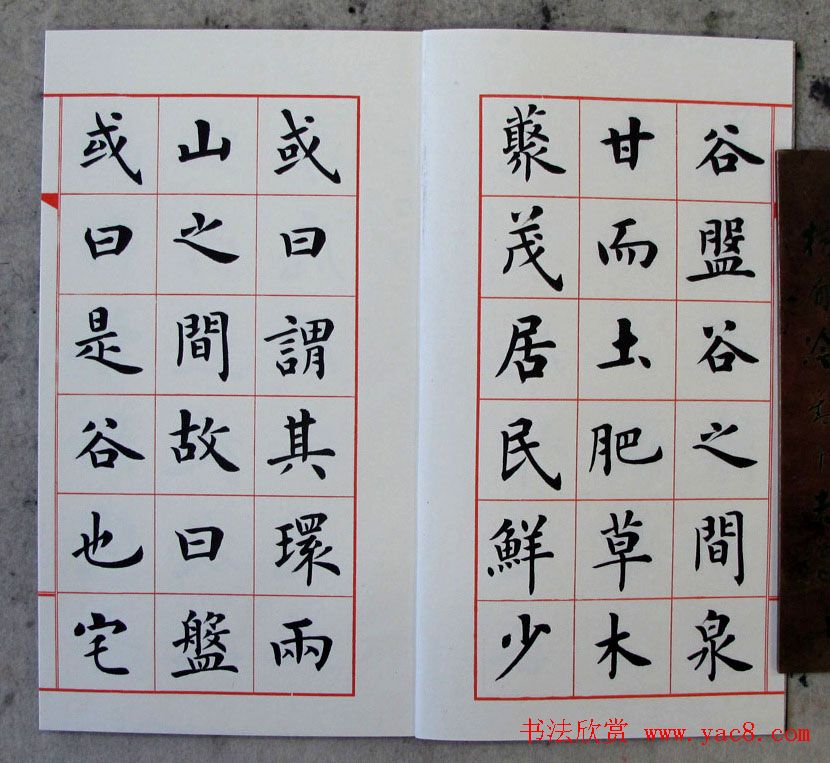 谷盤谷之間泉
甘而土肥草木
藂茂居民鮮少
或曰謂其環兩
山之間故曰盤
或曰是谷也宅
书法欣赏 www.yac8.com